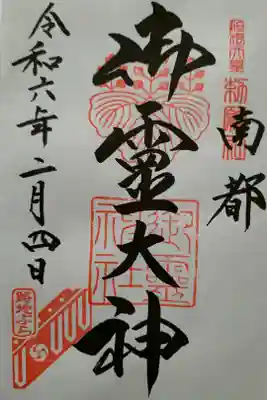 南都
御靈大神
御靈神社
令和六年二月四日